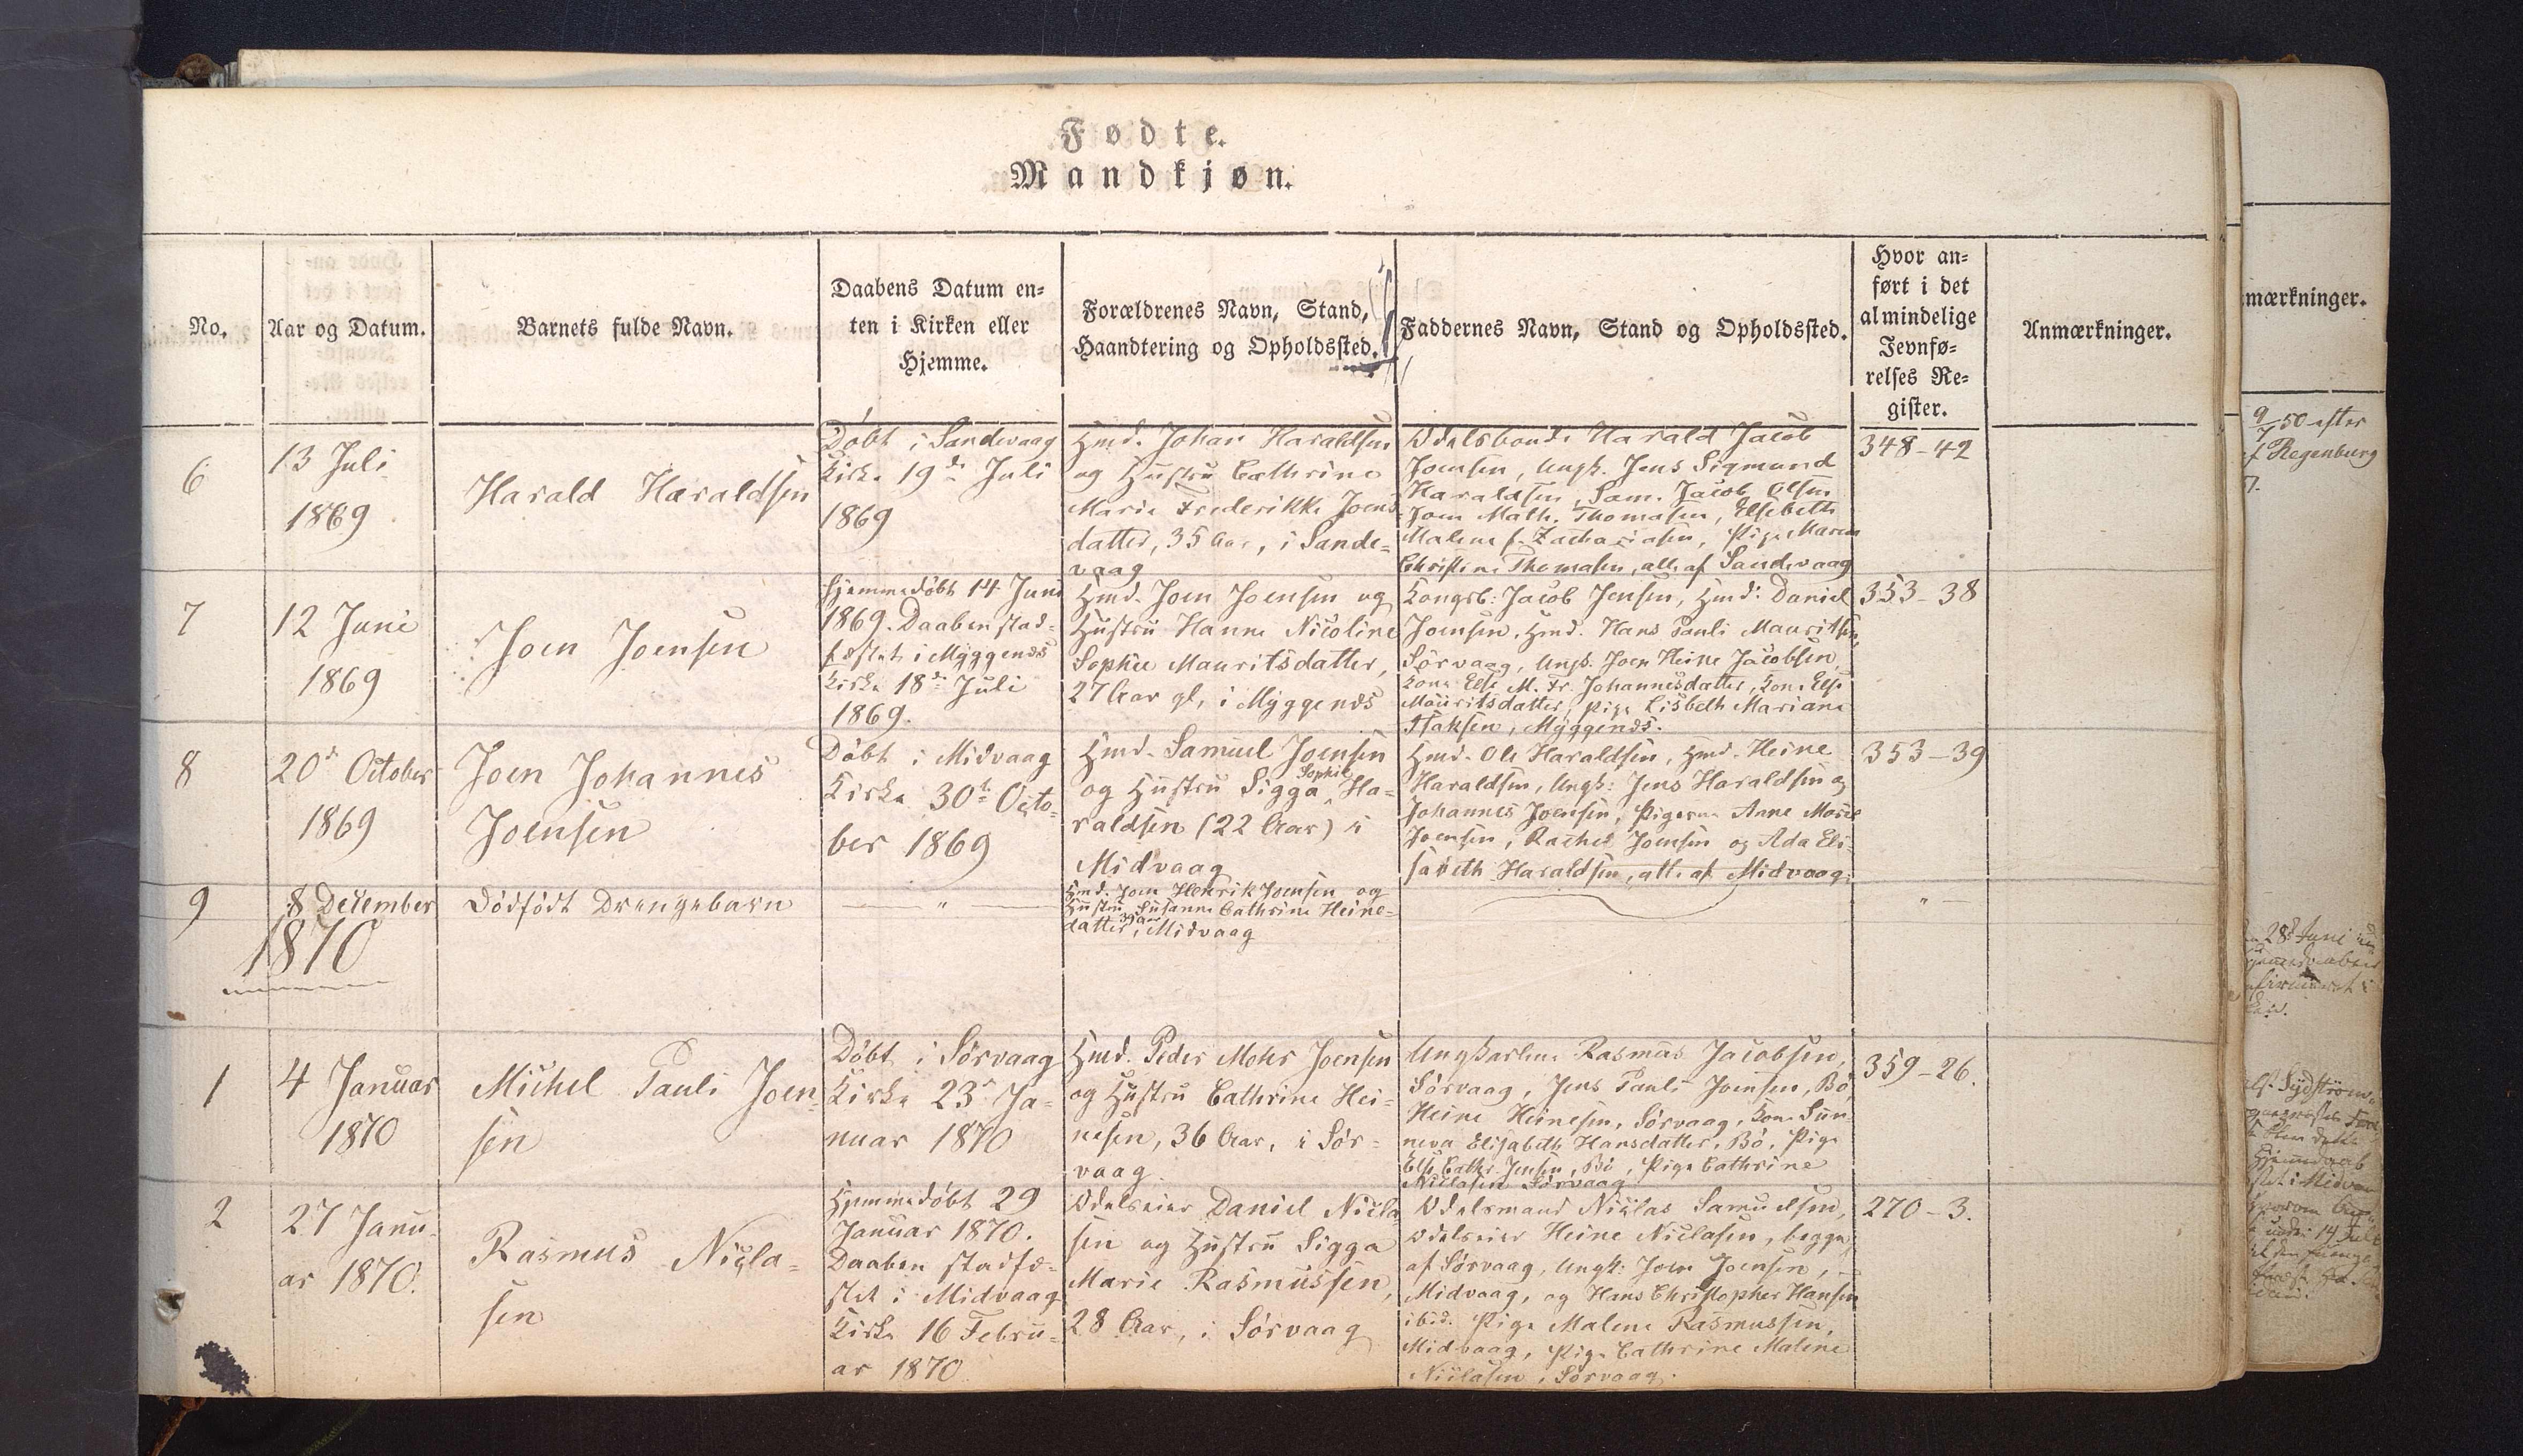 Fødte.
Mandkjøn.
No.
Aar og Datum.
Barnets fulde Navn.
Daabens Datum en-
ten i Kirken eller
Hjemme.
Forældrenes Navn, Stand,
Haandtering og Opholdssted.
Faddernes Navn, Stand og Opholdssted.
Hvor an-
ført i det
almindelige
Jevnfø-
relses Re-
gister.
Anmærkninger.
6
13 Juli
1869
Harald Haraldsen
Døbt i Sandevaag
Kirke 19de Juli
1869
Hmd. Johan Haraldsen
og Hustru Cathrine
Marie Frederikke Joens-
datter, 35 Aar, i Sande-
vaag
Odelsbonde Harald Jacob
Joensen, Ungk. Jens Sigmund
Haraldsen, Sam. Jacob Olsen
Joen Math. Thomasen, Elsebeth
Malene f. Zachariasen, Pige Maren
Christine Thomasen, alle af Sandevaag
348-42
7
12 Juni
1869
Joen Joensen
Hjemmedøbt 14 Juni
1869. Daaben stad-
fæstet i Myggenæs
Kirke 18de Juli
1869.
Hmd. Joen Joensen og
Hustru Hanne Nicoline
Sophie Mauritsdatter,
27 Aar gl, i Myggenæs
Kongsb: Jacob Jensen, Hmd: Daniel
Joensen, Hmd. Hans Pauli Mauritsen,
Sørvaag, Ungk. Joen Heine Jacobsen,
Kone Else M. Fr. Johannesdatter, Kone Else
Mauritsdatter, Pige Lisbeth Mariane
Isaksen, Myggenæs.
353-38
8
20de October
1869
Joen Johannes
Joensen
Døbt i Midvaag
Kirke 30te Octo-
ber 1869
Hmd. Samuel Joensen
og Hustru Sigga Sophie Ha-
raldsen (22 Aar) i
Midvaag
Hmd. Ole Haraldsen, Hmd. Heine
Haraldsen, Ungk: Jens Haraldsen og
Johannes Joensen, Pigerne Anne Marie
Joensen, Rachel Joensen og Ada Eli-
sabeth Haraldsen, alle af Midvaag
353-39
9
8 December
Dødfødt Drengebarn
"
Hmd. Joen Henrik Joensen og
Hustru Susanne Cathrine Heine-
datter 39 Aar i Midvaag
"
1870
1
4 Januar
1870
Michel Pauli Joen-
sen
Døbt i Sørvaag
Kirke 23de Ja-
nuar 1870
Hmd. Peder Mohr Joensen
og Hustru Cathrine Hei-
nesen, 36 Aar, i Sør-
vaag
Ungkarlene Rasmus Jacobsen,
Sørvaag, Jens Pauli Joensen, Bø,
Heine Heinesen, Sørvaag, Kone Sun-
neva Elisabeth Hansdatter, Bø, Pige
Else Cathr. Jensen, Bø, Pige Cathrine
Niclasen Sørvaag
359-26.
2
27 Janu-
ar 1870.
Rasmus Nicla-
sen
Hjemmedøbt 29
Januar 1870.
Daaben stadfæ-
stet i Midvaag
Kirke 16 Febru-
ar 1870
Odelseier Daniel Nicla-
sen og Hustru Sigga
Marie Rasmussen,
28 Aar, i Sørvaag
Odelsmand Niclas Samuelsen,
Odelseier Heine Niclasen, begge
af Sørvaag, Ungk: Joen Joensen,
Midvaag, og Hans Christopher Hansen
ibid. Pige Malene Rasmussen,
Midvaag, Pige Cathrine Malene
Niclasen, Sørvaag.
270-3.
mærkninger.
9/7 50 efter
af Regenburg
28de Juni
Sydstrøm
Midvaag
14 Juli